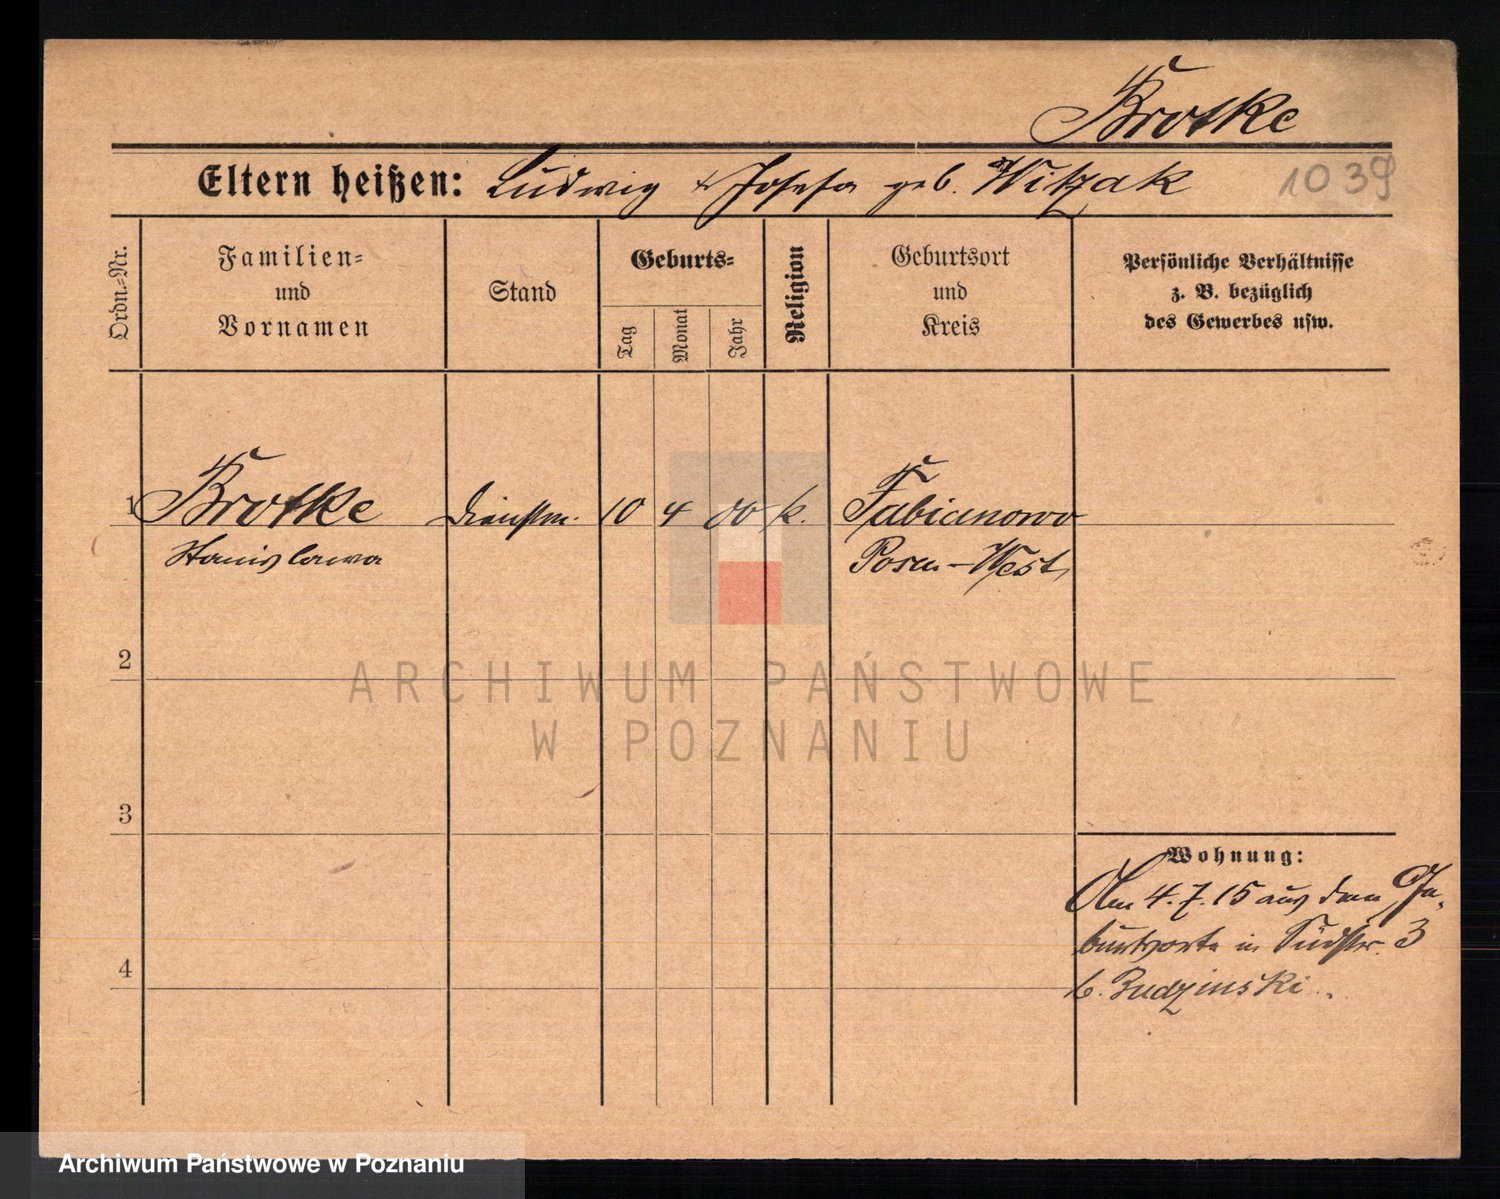 Brotke
Eltern heißen: Ludwig & Josefa geb. Witzak 1039
Ordn.-Nr.
Familien-
und
Vornamen
Stand
Geburts-
Tag
Monat
Jahr
Religion
Geburtsort
und
Kreis
Persönliche Verhältnisse
z. B. bezüglich
des Gewerbes usw.
1 Brotke Dienstm. 10 4 00 k. Fabianowo
Stanislawa Posen-West
2
ARCHIWUM PAŃSTWOWE
W POZNANIU
3
Wohnung:
Am 4.7.15 aus dem Ge-
burtsorte in Südstr. 3
4
b. Budzinski.
Archiwum Państwowe w Poznaniu